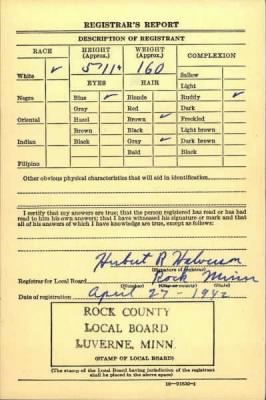 REGISTRAR'S REPORT
DESCRIPTION OF REGISTRANT
RACE HEIGHT (Approx.) WEIGHT (Approx.) COMPLEXION
White ✓ 5'11" 160 Sallow
EYES HAIR Light
Negro Blue ✓ Blonde Ruddy ✓
Gray Red Dark
Oriental Hazel Brown ✓ Freckled
Brown Black Light brown
Indian Black Gray ✓ Dark brown
Bald Black
Filipino
Other obvious physical characteristics that will aid in identification
I certify that my answers are true; that the person registered has read or has had
read to him his own answers; that I have witnessed his signature or mark and that
all of his answers of which I have knowledge are true, except as follows:
Hubert R Halverson
(Signature of registrar)
Registrar for Local Board Rock Minn
(Number) (City or county) (State)
Date of registration April 27-1942
ROCK COUNTY
LOCAL BOARD
LUVERNE, MINN.
(STAMP OF LOCAL BOARD)
(The stamp of the Local Board having jurisdiction of the registrant
shall be placed in the above space)